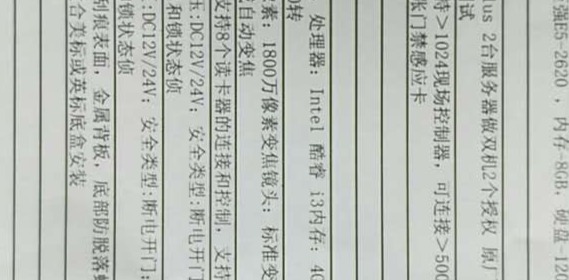 强E5-2620 , 内存-8GB, 硬盘-120
lus 2台服务器做双机2个授权 原
试
持>1024现场控制器, 可连接>500
张门禁感应卡
处理器: Intel 酷睿 i3内存: 4G
0转
素: 1800万像素变焦镜头: 标准变
自动变焦
支持8个读卡器的连接和控制, 支持
压:DC12V/24V; 安全类型:断电开门
和锁状态侦
:DC12V/24V; 安全类型:断电开门:
锁状态侦
刮痕表面, 金属背板, 底部防脱落
合美标或英标底盒安装